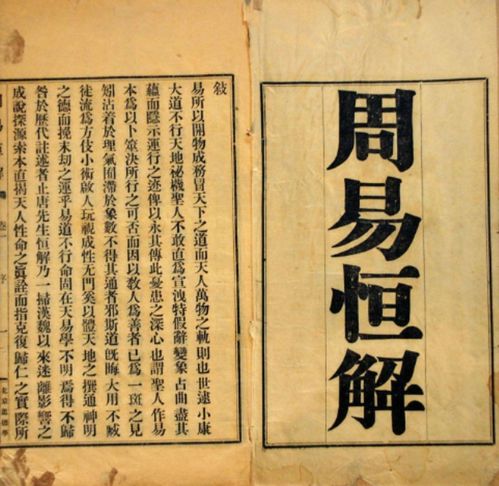 周易恒解
敍
易所以開物成務冒天下之道而天人萬物之軌則也世逮小康
大道不行天地祕機聖人不敢直爲宣洩特假辭變象占曲盡其
蘊而隱示運行之迹俾以永其傳此憂患之深心也謂聖人作易
本爲以卜筮決所行之可否而因以敎人爲善者已爲一斑之見
矧沾着於理氣囿滯於象數不得其通者邪斯道旣晦大用不臧
徒流爲方伎小術啟人玩視成性无門奚以體天地之撰通神明
之德而挽末劫之運乎易道不行命固在天易學不明焉得不歸
咎於歷代註述者止唐先生恒解乃一掃漢魏以來迷離影響之
成說探源索本直揭天人性命之眞詮而指克復歸仁之實際所
卷一 序 一 北京道德學